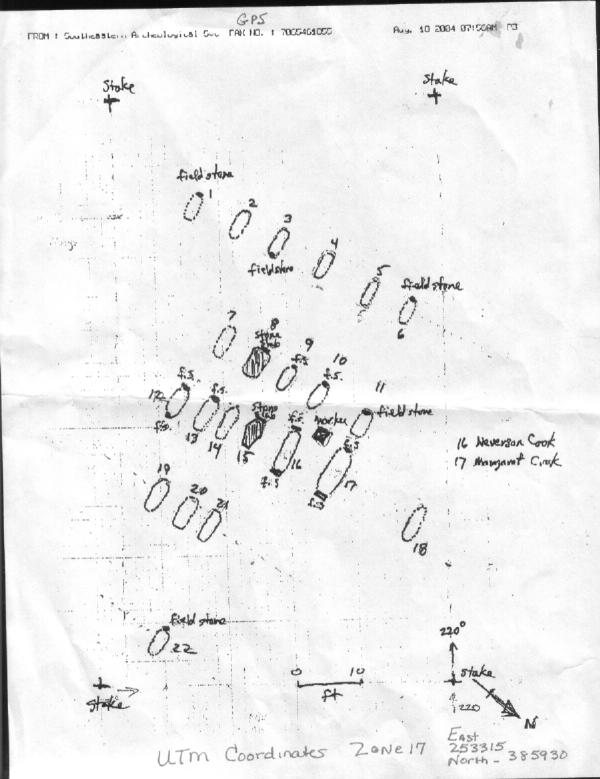 GPS
FROM : Southeastern Archeological Svc FAX NO. : 7065461055 Aug. 10 2004 07:56AM P3
Stake
Stake
field stone
1
2
3
field stone
4
5
field stone
6
7
8
stone
slab
9
f.s.
10
f.s.
11
field stone
12
f.s.
f.s.
f.s.
13
14
stone
slab
15
f.s.
16
f.s
marker
f.s
17
f.s
16 Neverson Cook
17 Margaret Cook
18
19
20
21
field stone
22
Stake
0 10
ft
220°
Stake
220
N
UTM Coordinates Zone 17
East
253315
North - 385930